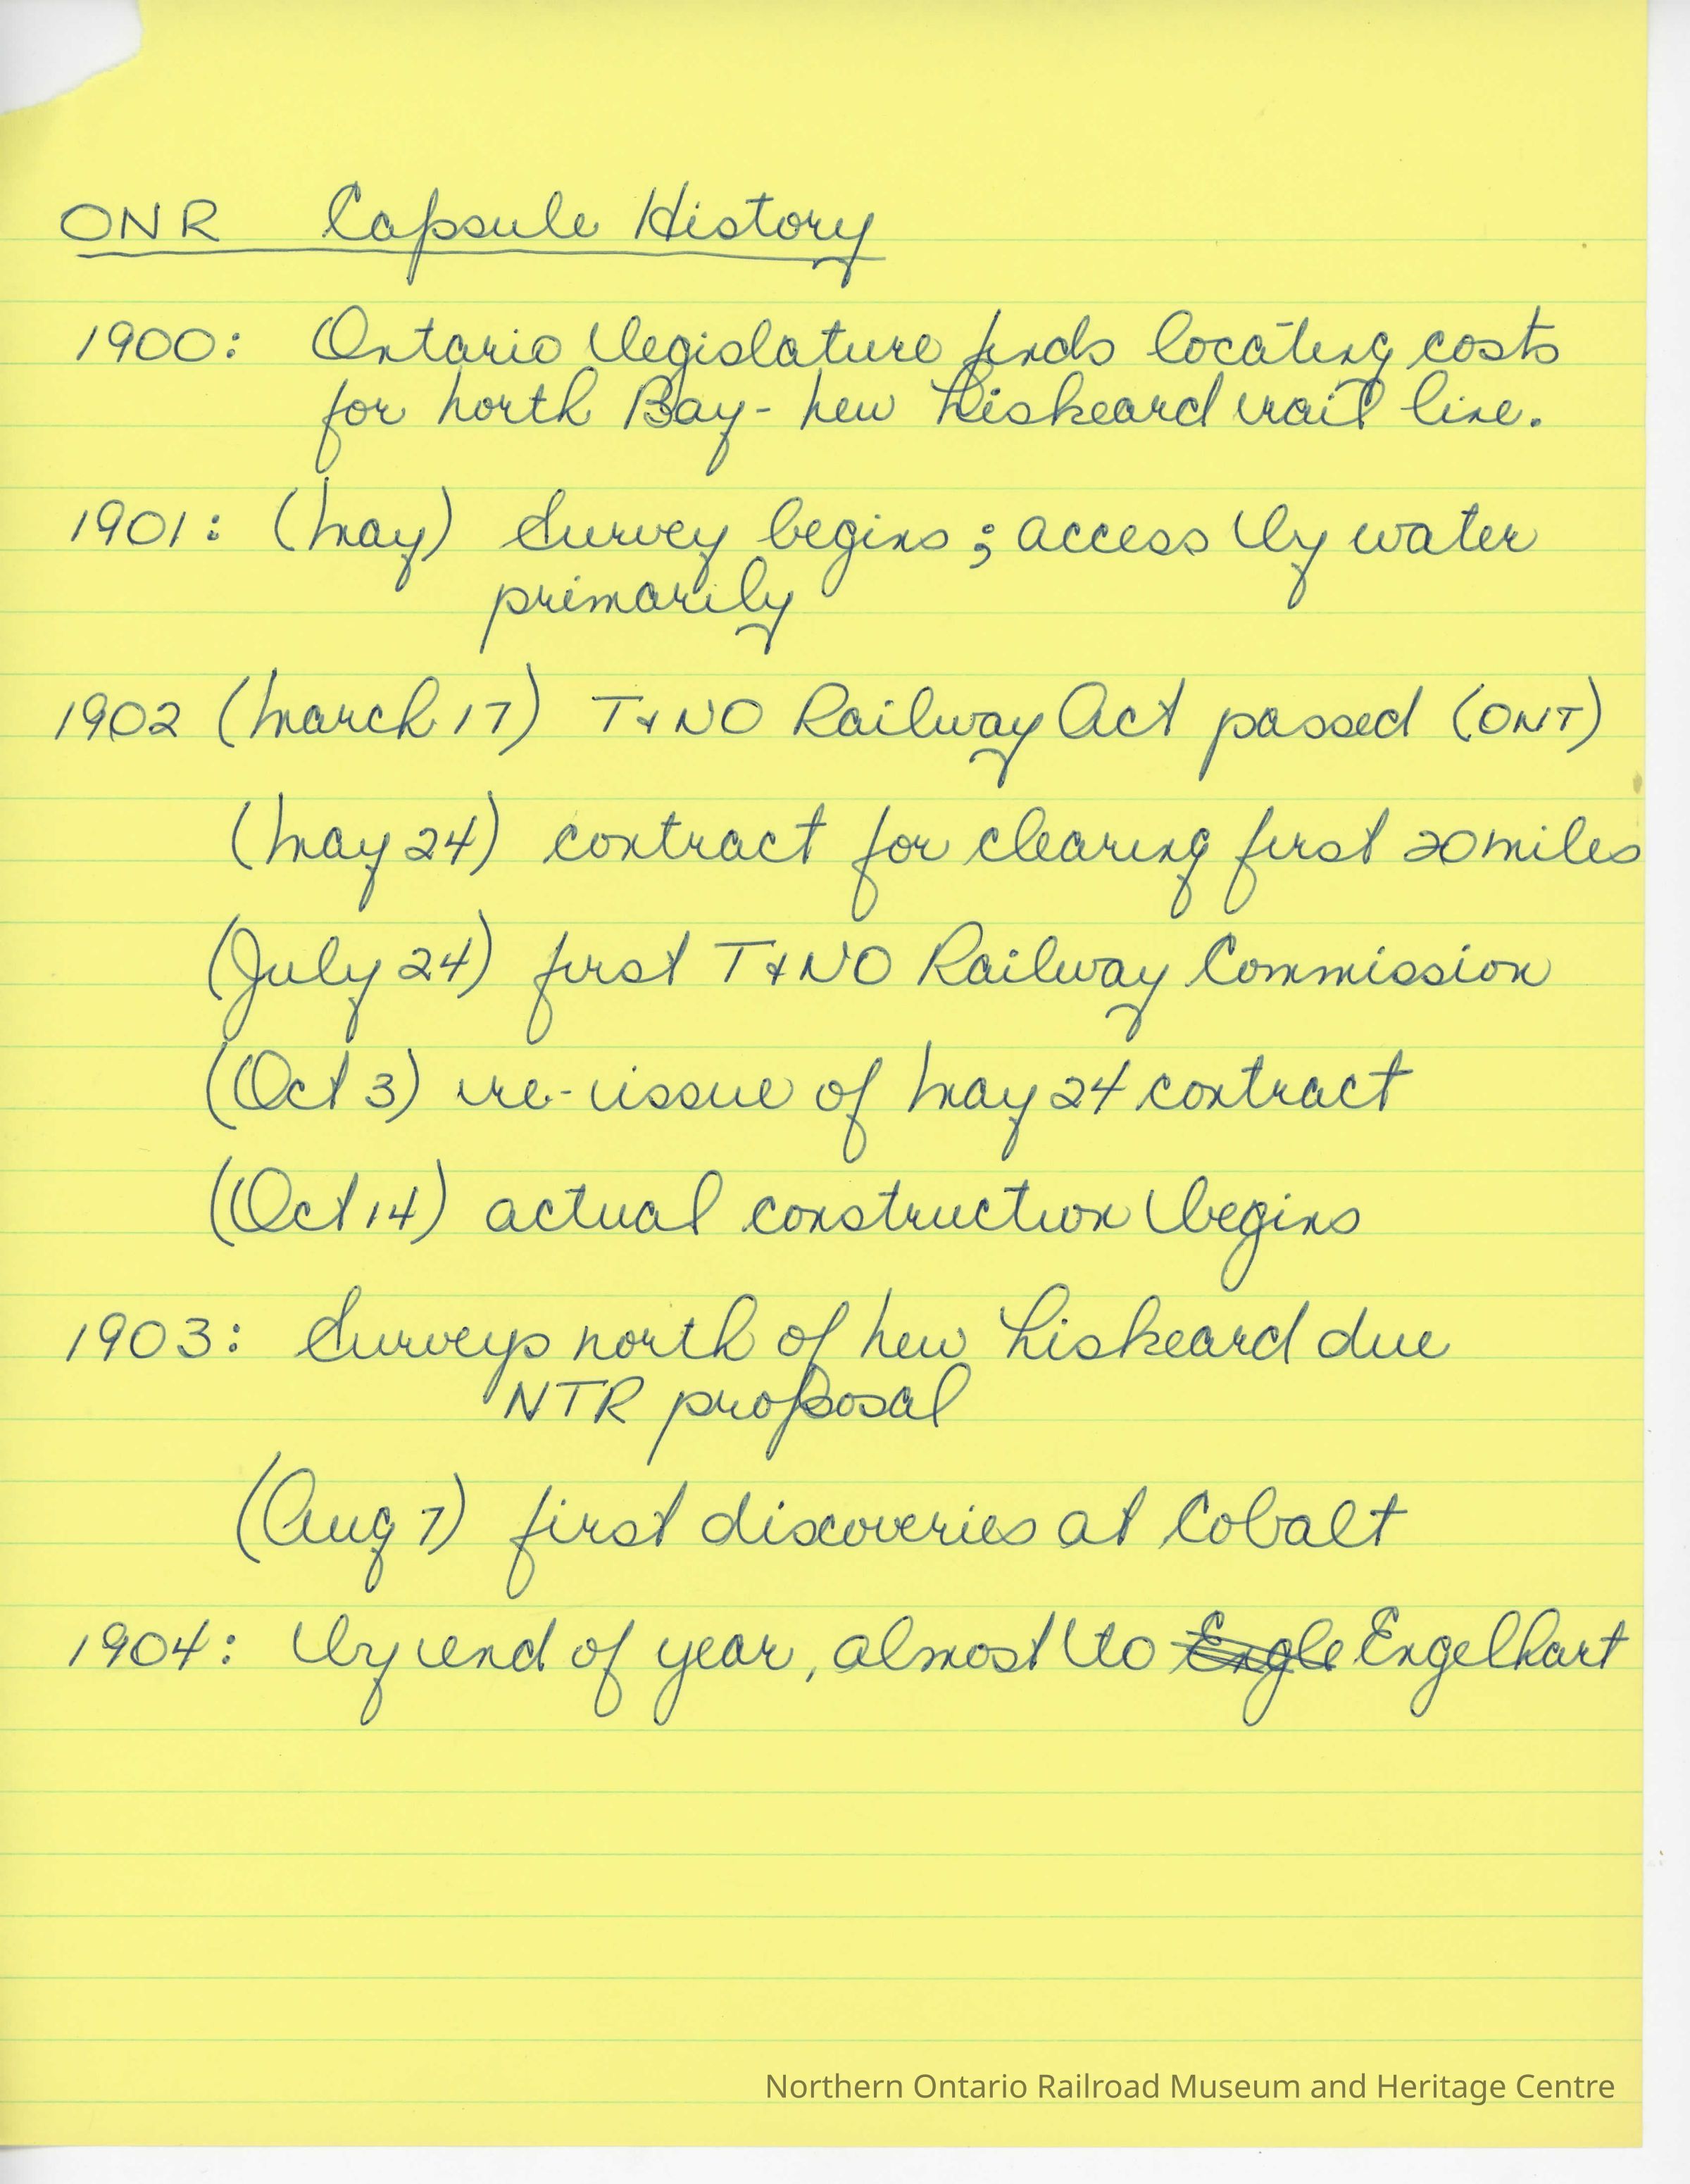 ONR Capsule History
1900: Ontario Legislature finds locating costs
for North Bay - New Liskeard rail line.
1901: (May) Survey begins; access by water
primarily
1902 (March 17) T+NO Railway Act passed (ONT)
(May 24) contract for clearing first 20 miles
(July 24) first T+NO Railway Commission
(Oct 3) re-issue of May 24 contract
(Oct 14) actual construction begins
1903: Surveys north of New Liskeard due
NTR proposal
(Aug 7) first discoveries at Cobalt
1904: by end of year, almost to Engle Engelhart
Northern Ontario Railroad Museum and Heritage Centre